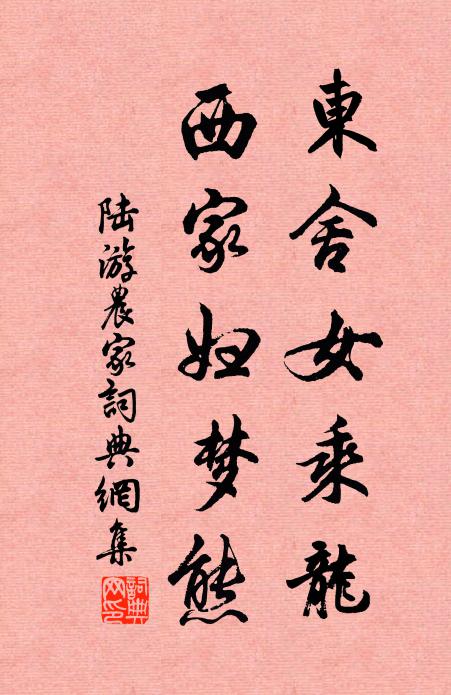 東舍女乘龍
西家妇梦熊
陆游農家詞典網集
詞典网印